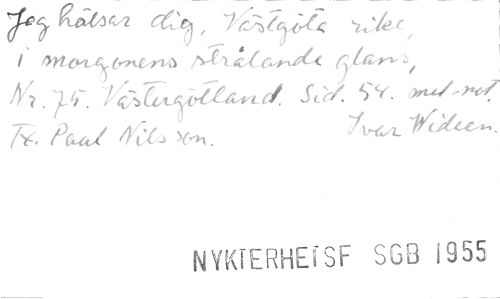 Jag hälsar dig, Västgöta rike,
i morgonens strålande glans,
Nr. 75. Västergötland. Sid. 54. mel-not.
Tx. Paul Nilsson. Ivar Wideen.
NYKTERHETSF SGB 1955